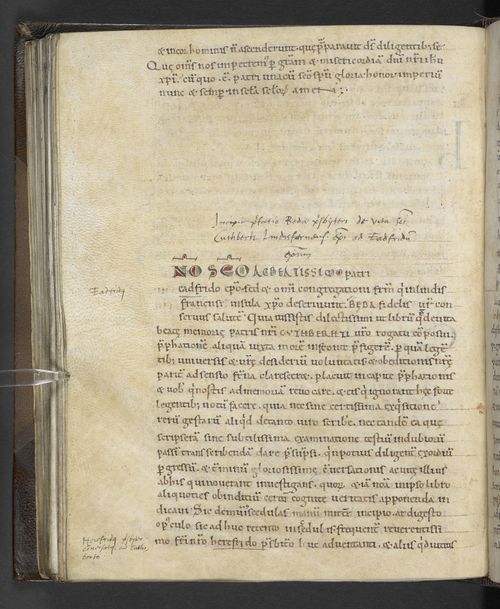 & in cor hominis n̄ ascenderunt. quę p̄parauit d̄s diligentib; se.
Quę om̄s nos impertem̄ p̱ gr̄am & misericordiā dn̄i nr̄i ih̄u
xp̄i. cū quo ē patri una cū sc̄o sp̄u gloria honor imperiū
nunc & semp̱ in sc̄la sc̄loꝝ amen
Incipit p̄fatio Bedæ p̄sbyteri de vita sc̄i
Cuthberti Lindisfarnensis ep̄i ad Eadfridum
ep̄um
SCO AC BEATISSIMO patri
Eadfridꝰ
eadfrido ep̄o. sed & om̄i congregationi fr̄m q̇ in lindis
farnensi insula xp̄o deseruiunt. BEDA fidelis ur̄ con
seruus salutē. Quia iussistis dilectissimi ut libro quē de uita
beatę memorię patris nr̄i CUTHBERHTI uro rogatu cōposui
p̄phationē aliquā iuxta morē p̄figerē. p̱ quā legē
tib; uniuersis & ur̄e desideriū uoluntatis & obeditionis nr̄ę
pariē adsensio fr̄na claresceret. placuit in capite p̄phationis
& uob̄ q̇ nostis ad memoriā reuocare. & eis q̇ ignorant hęc forte
legentib; notū facere. quia nec sine certissima exq̇sitione
rerū gestarū aliq̇d de tanto uiro scribe. nec tandē ea quę
scripserā sine subtilissima examinatione testiū indubioꝝ
passī transcribenda dare p̄sūpsi. q̇n potius diligent̄ exordiū
p̱gressū. & t̄minū gloriosissimę c̄uersationis ac uitę illius
ab his qui nouerant inuestigans. quoꝝ & iā noīa in ipso libro
aliquotiens ob indiciū certū cognitę ueritatis apponenda in
dicaui. Sic demū scedulas manū mitt̄e incipio. at digesto
opusculo sed adhuc retento in scedulis frequent̄ & reuerentissi
mo fr̄i nr̄o herefrido p̄sbit̄o huc aduentanti. & aliis q̇ diutius
Herefridꝰ p̄sbyter